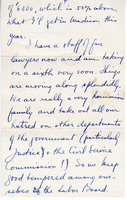 of 6500, which is 50% above
what I'll get in Madison this
year.
I have a staff of five
lawyers now and am taking
on a sixth very soon. Things
are moving along splendidly.
We are really a very
family and take out all our
hatred on other departments
of the government (particularly
Justice & the Civil Service
Commission!) So we keep
good tempered among our-
selves of the Labor Board.